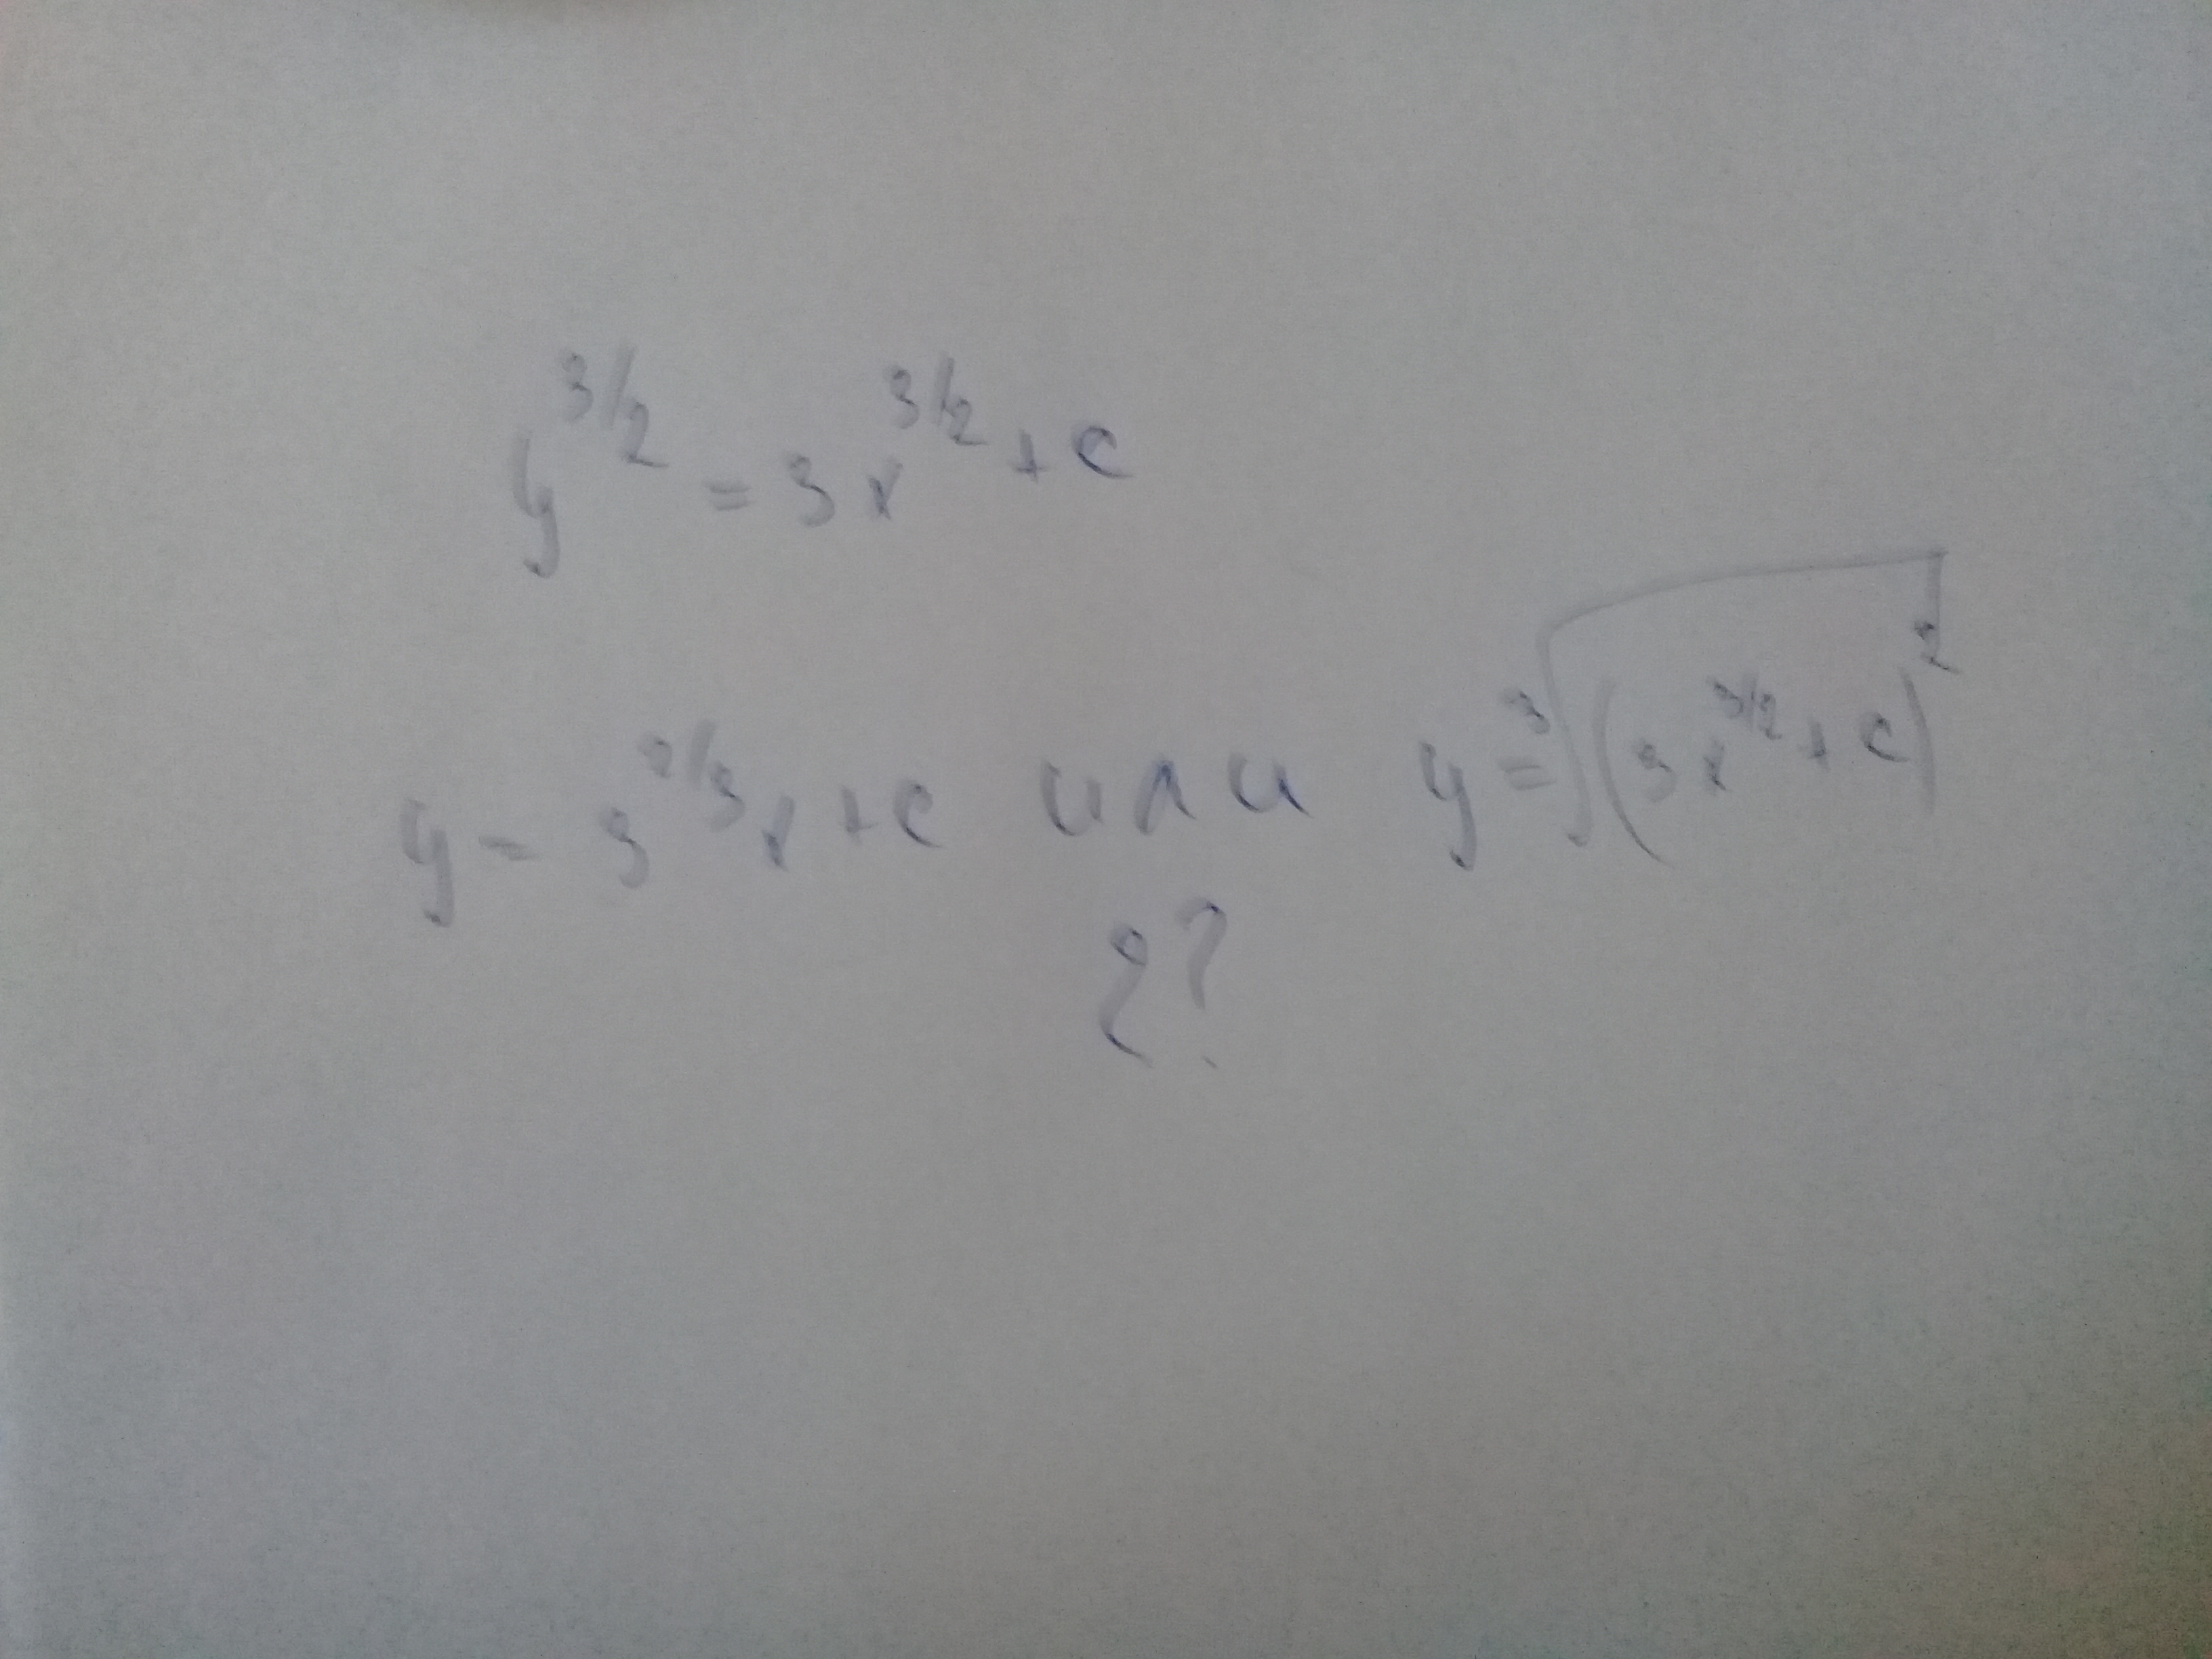 y^{3/2} = 3x^{3/2} + c
y = 3^{2/3}x + c или y = ∛(3x^{3/2} + c)^2
??